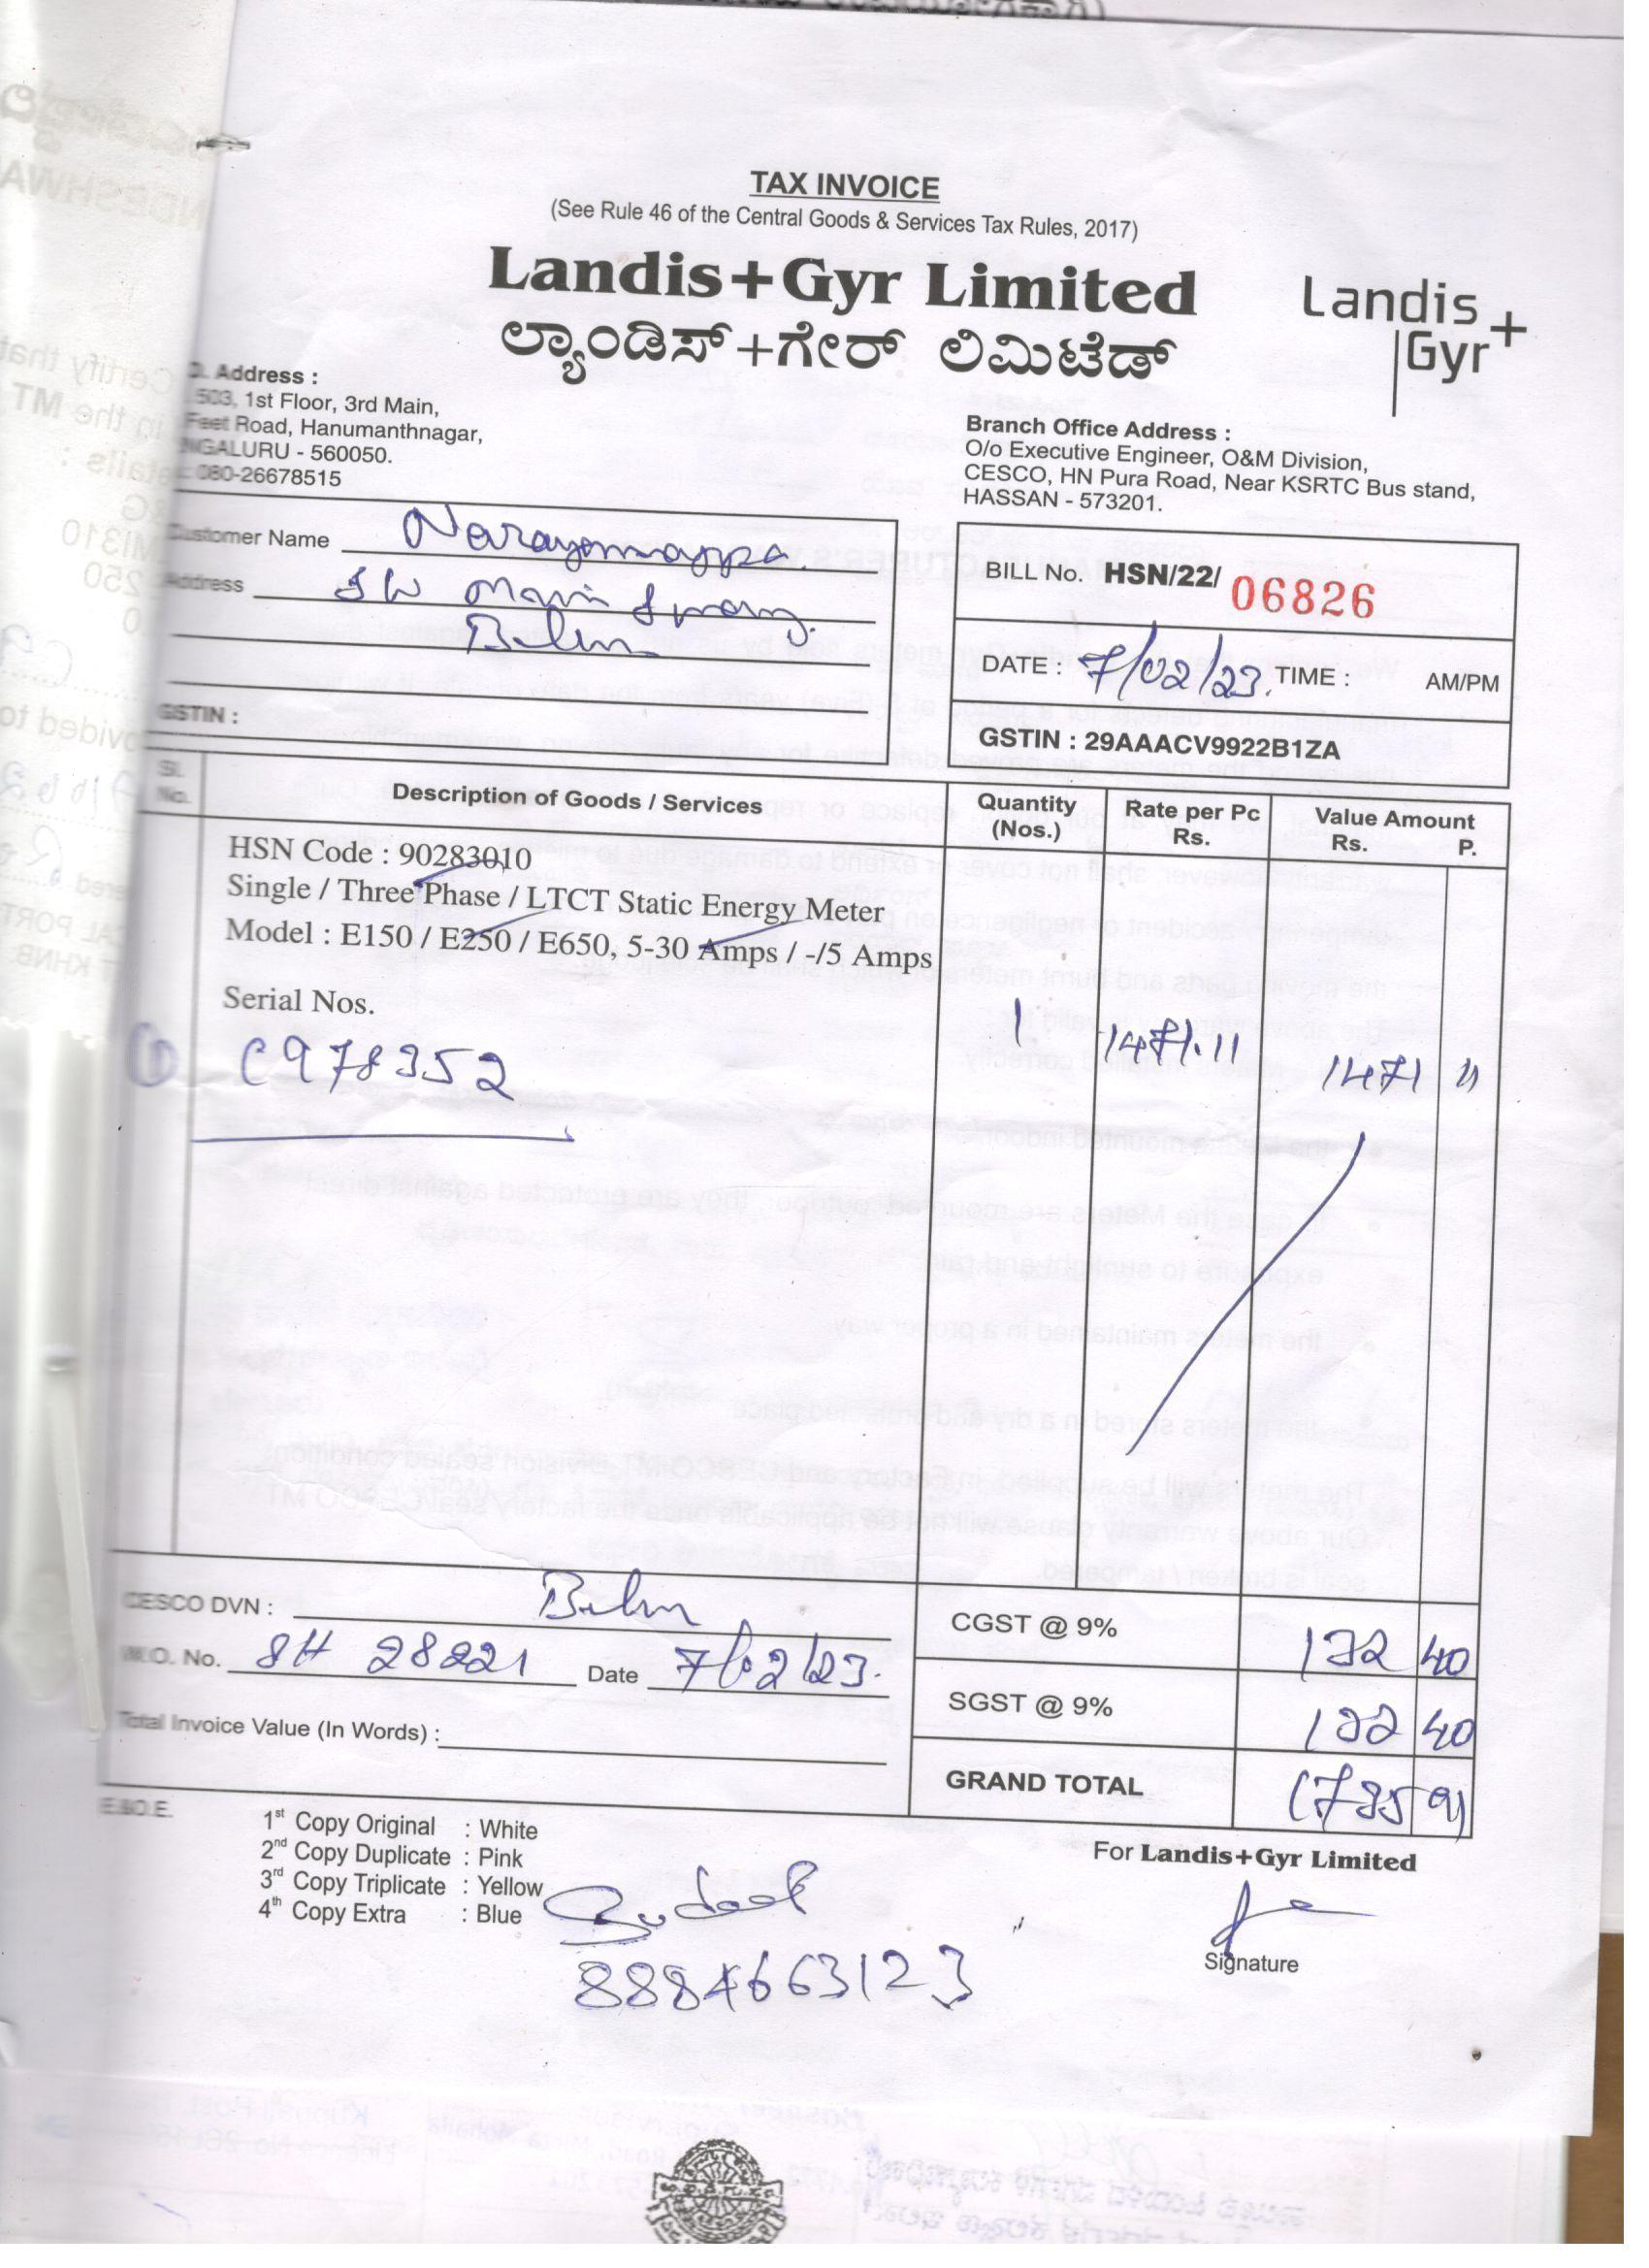 TAX INVOICE
(See Rule 46 of the Central Goods & Services Tax Rules, 2017)
Landis+Gyr Limited
ಲ್ಯಾಂಡಿಸ್+ಗೇರ್ ಲಿಮಿಟೆಡ್
Landis+
Gyr+
Address :
503, 1st Floor, 3rd Main,
Feet Road, Hanumanthnagar,
NGALURU - 560050.
080-26678515
Branch Office Address :
O/o Executive Engineer, O&M Division,
CESCO, HN Pura Road, Near KSRTC Bus stand,
HASSAN - 573201.
Customer Name Narayanappa.
Address
GSTIN :
BILL No. HSN/22/ 06826
DATE : 7/02/23. TIME : AM/PM
GSTIN : 29AAACV9922B1ZA
Sl. No. Description of Goods / Services Quantity (Nos.) Rate per Pc Rs. Value Amount Rs. P.
HSN Code : 90283010
Single / Three Phase / LTCT Static Energy Meter
Model : E150 / E250 / E650, 5-30 Amps / -/5 Amps
Serial Nos.
① C978352 1 1471.11 1471 11
CESCO DVN :
W.O. No. 28221 Date 7/02/23.
Total Invoice Value (In Words) :
CGST @ 9% 132 40
SGST @ 9% 132 40
GRAND TOTAL 1735 91
E.&O.E.
1st Copy Original : White
2nd Copy Duplicate : Pink
3rd Copy Triplicate : Yellow
4th Copy Extra : Blue
8884663123
For Landis+Gyr Limited
Signature